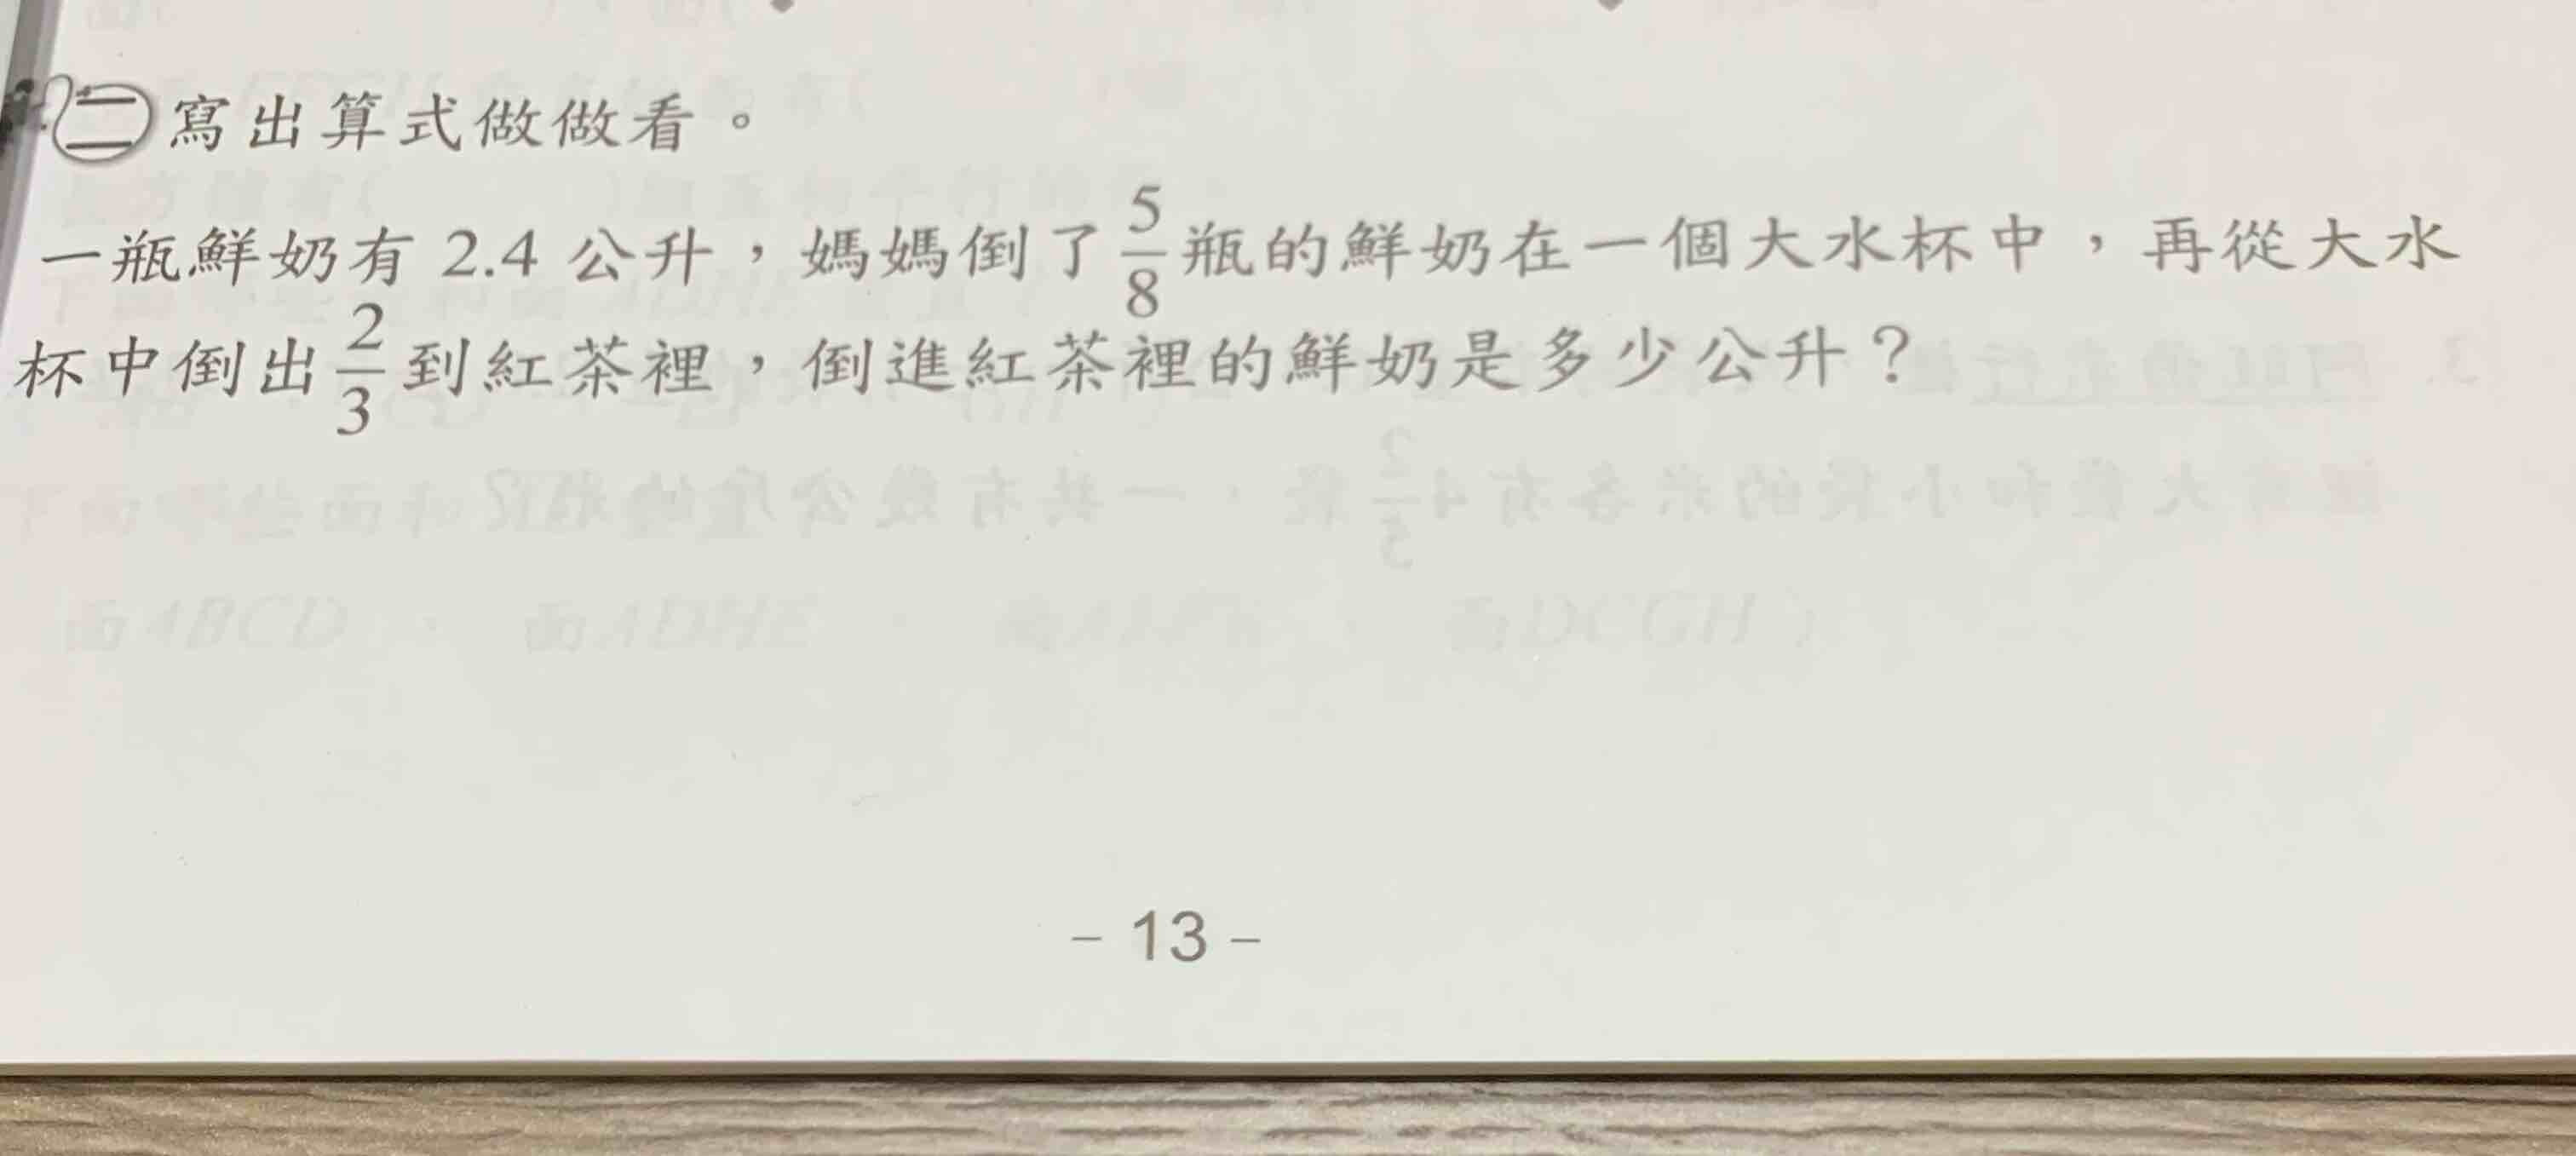 ㊁寫出算式做做看。
一瓶鮮奶有 2.4 公升，媽媽倒了5/8瓶的鮮奶在一個大水杯中，再從大水
杯中倒出2/3到紅茶裡，倒進紅茶裡的鮮奶是多少公升？
– 13 –